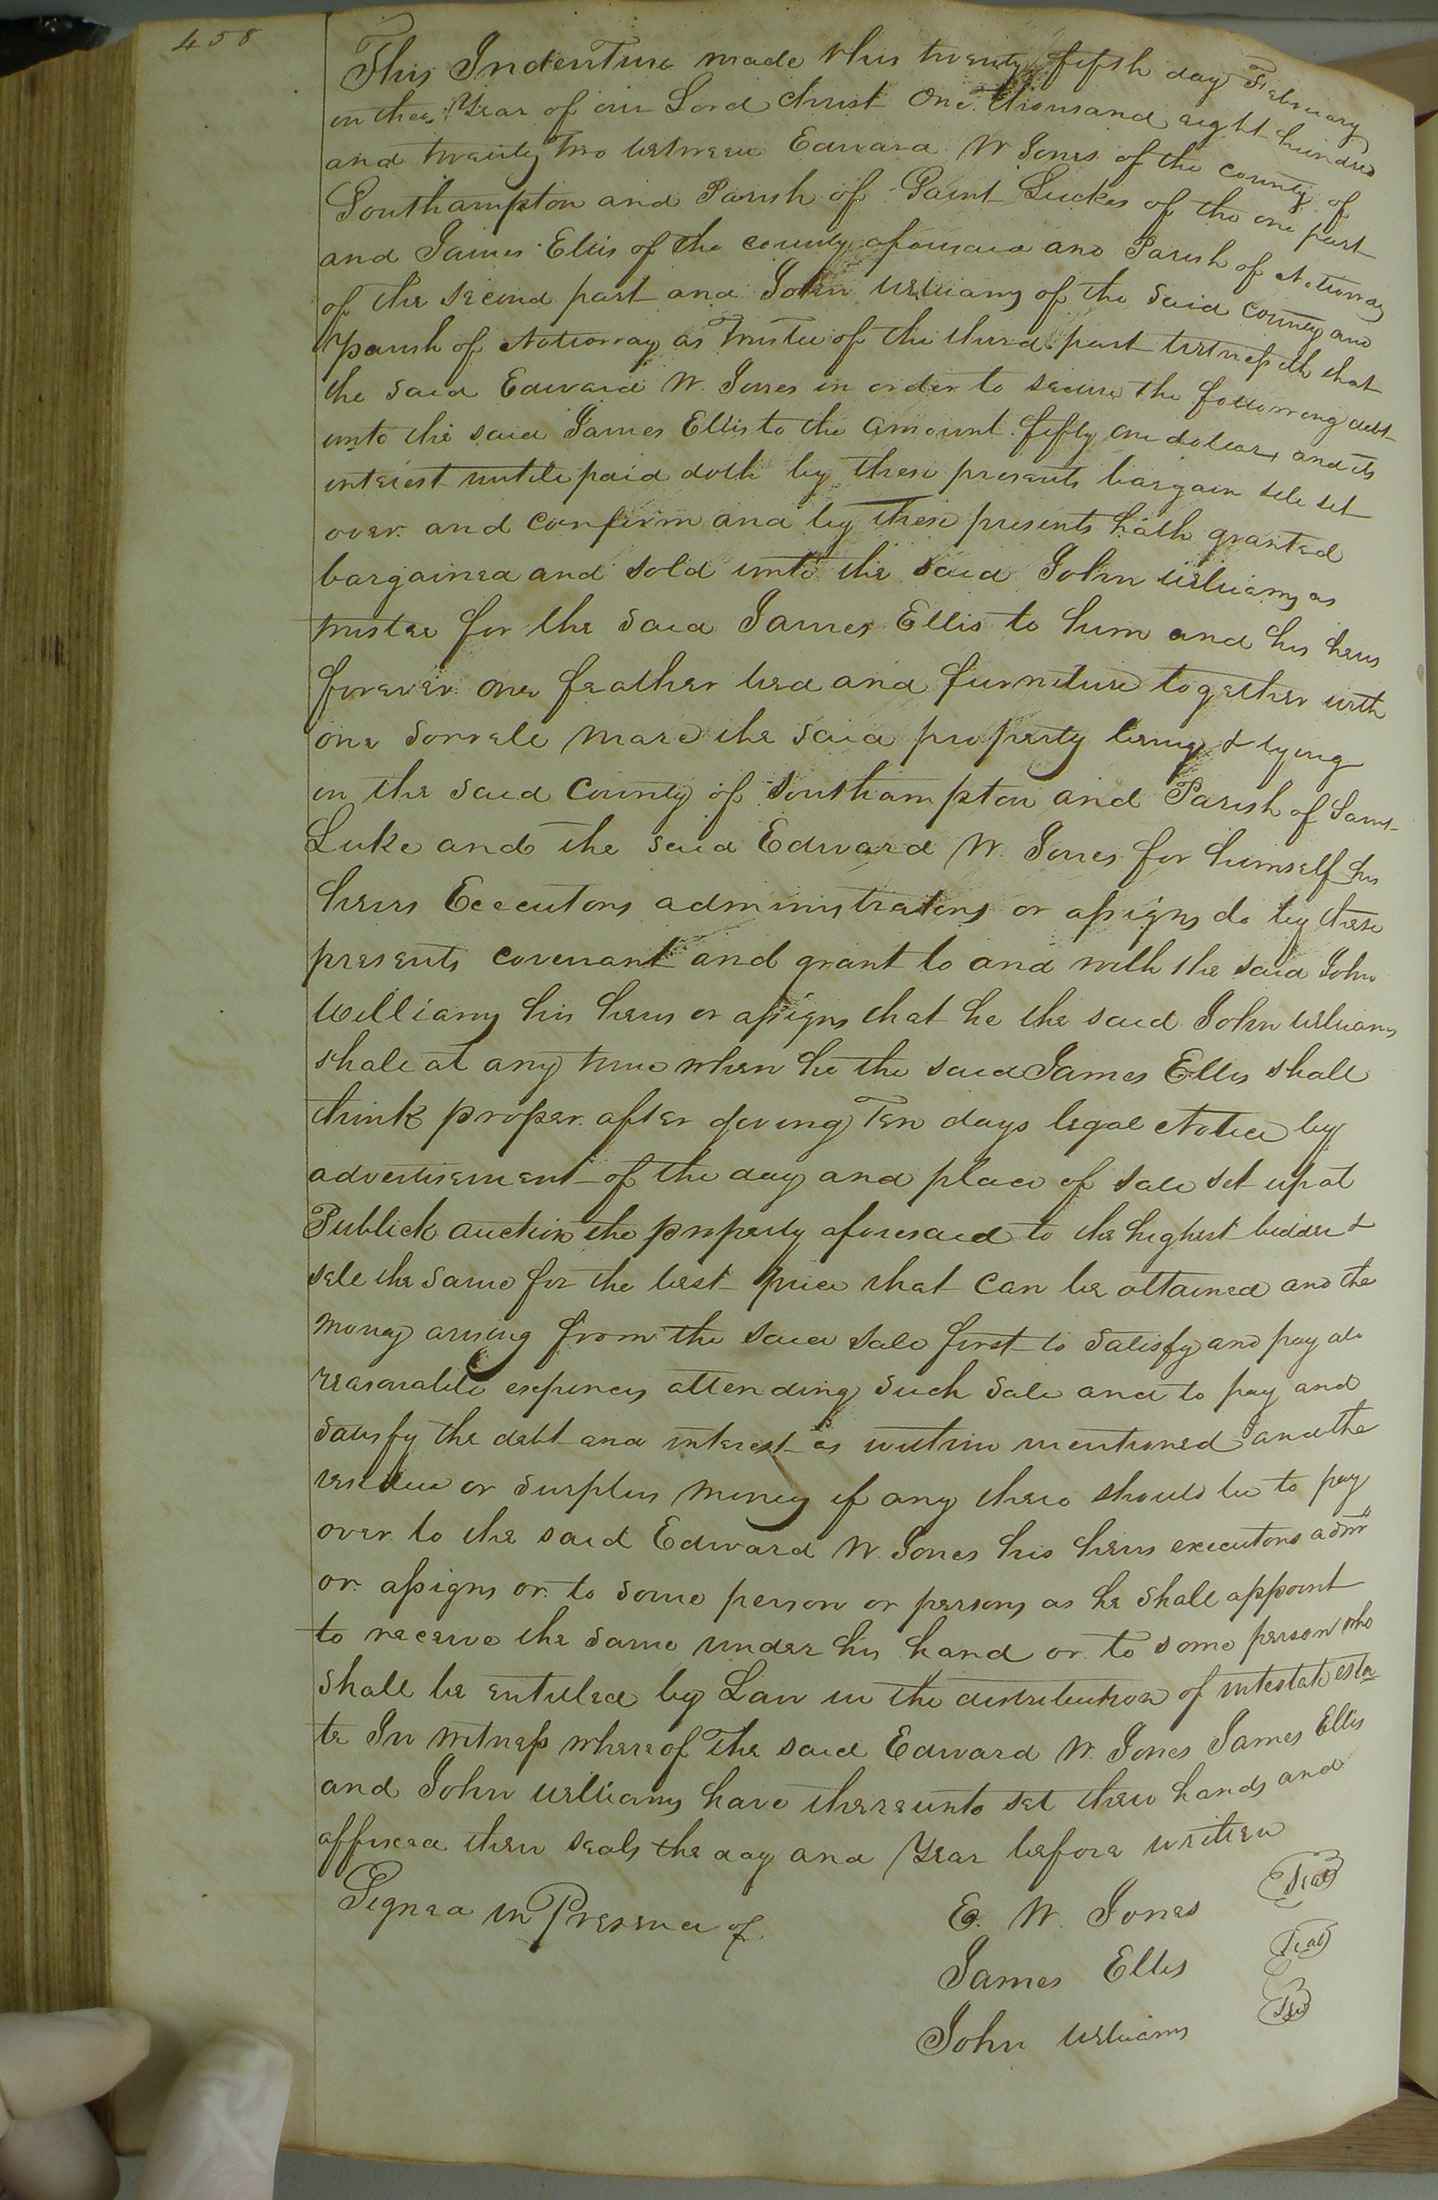 458
This Indenture made this twenty fifth day February
in the Year of our Lord Christ One thousand eight hundred
and twenty two between Edward W Jones of the county of
Southampton and Parish of Saint Luckes of the one part
and James Ellis of the county aforesaid and Parish of Nottoway
of the second part and John Williams of the said county and
parish of Nottoway as Trustee of the third part witnesseth that
the said Edward W. Jones in order to secure the following debt
unto the said James Ellis to the amount fifty one dollars and its
interest untill paid doth by these presents bargain sell set
over and confirm and by these presents hath granted
bargained and sold unto the said John Williams as
trustee for the said James Ellis to him and his heirs
forever one feather bed and furniture together with
one sorrell mare the said property being & lying
in the said County of Southampton and Parish of Saint
Luke and the said Edward W. Jones for himself his
heirs Executors administrators or assigns do by these
presents covenant and grant to and with the said John
Williams his heirs or assigns that he the said John Williams
shall at any time when he the said James Ellis shall
think proper after giving Ten days legal Notice by
advertisement of the day and place of sale set up at
Publick auction the property aforesaid to the highest bidder &
sell the same for the best price that can be attained and the
money arising from the said sale first to satisfy and pay all
reasonable expences attending such sale and to pay and
satisfy the debt and interest as within mentioned and the
residue or surplus money if any there should be to pay
over to the said Edward W. Jones his heirs executors admr
or assigns or to some person or persons as he shall appoint
to receive the same under his hand or to some person who
shall be entitled by Law in the distribution of intestate esta-
te In witness whereof The said Edward W. Jones James Ellis
and John Williams have thereunto set their hands and
affixed their seals the day and Year before written
Signed in Presence of
E. W. Jones Seal
James Ellis Seal
John Williams Seal